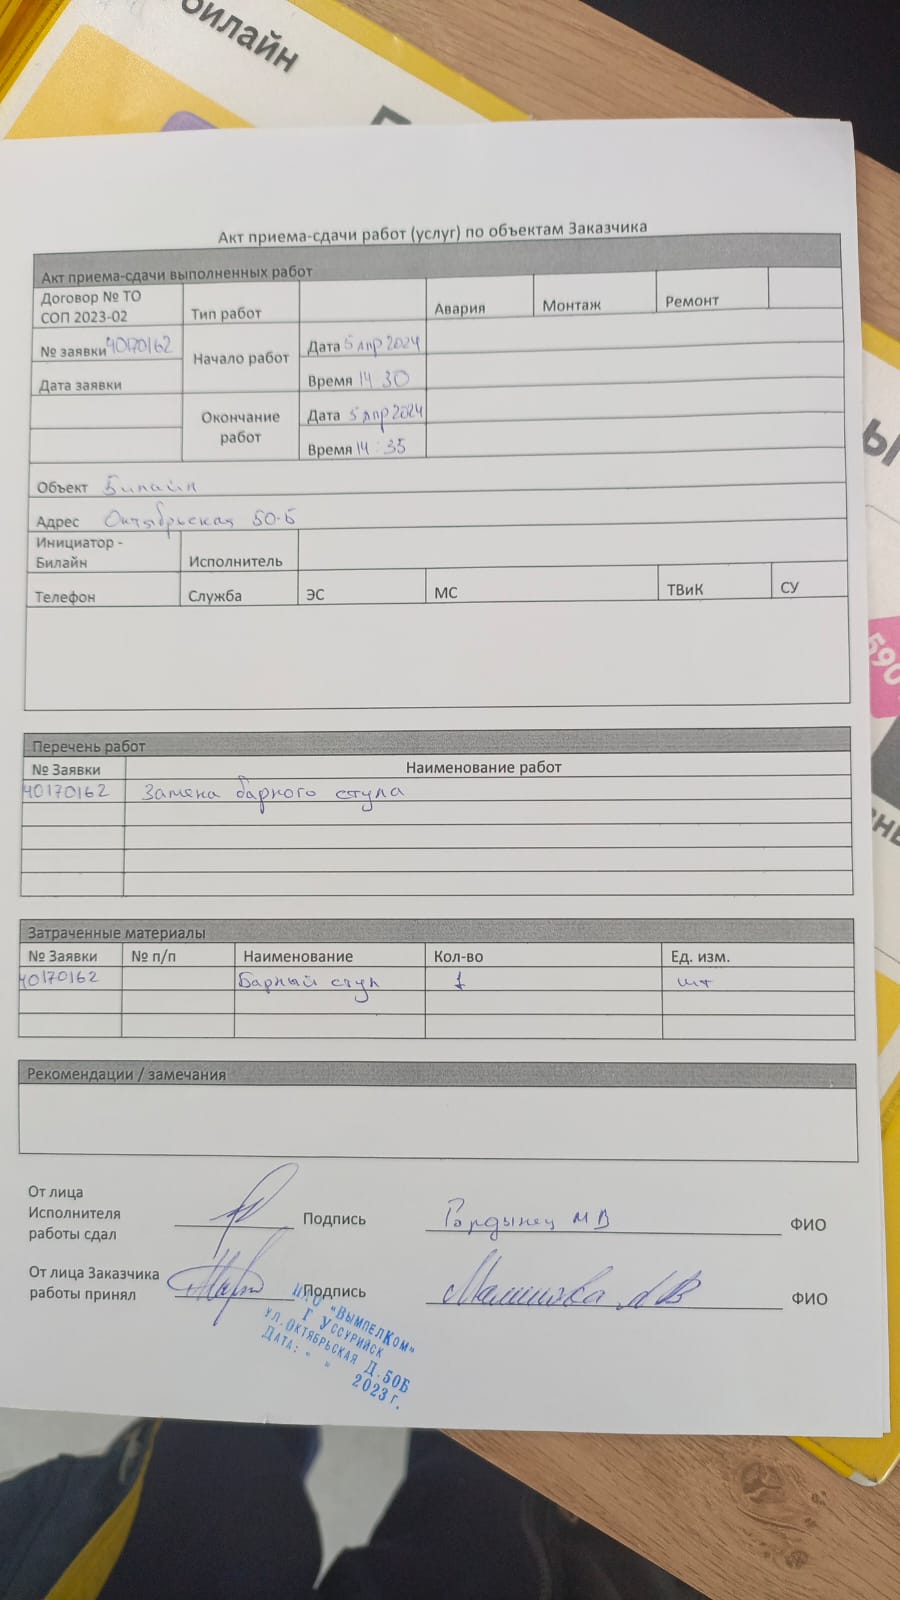 билайн
Акт приема-сдачи работ (услуг) по объектам Заказчика
Акт приема-сдачи выполненных работ
Договор № ТО СОП 2023-02
Тип работ
Авария
Монтаж
Ремонт
№ заявки 40170162
Начало работ
Дата 5 апр 2024
Дата заявки
Время 14 30
Окончание работ
Дата 5 апр 2024
Время 14:35
Объект Билайн
Адрес Октябрьская 50-Б
Инициатор - Билайн
Исполнитель
Телефон
Служба
ЭС
МС
ТВиК
СУ
590
Перечень работ
№ Заявки
Наименование работ
40170162 Замена барного стула
Затраченные материалы
№ Заявки
№ п/п
Наименование
Кол-во
Ед. изм.
40170162 Барный стул 1 шт
Рекомендации / замечания
От лица
Исполнителя
работы сдал
Подпись
Гордынец М В
ФИО
От лица Заказчика
работы принял
Подпись
ФИО
"ВымпелКом"
г Уссурийск
ул.Октябрьская д.50Б
Дата: " " 2023 г.